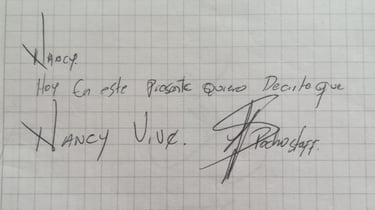 Nancy.
Hoy En este Presente Quiero Decirte que
NANCY Vive.